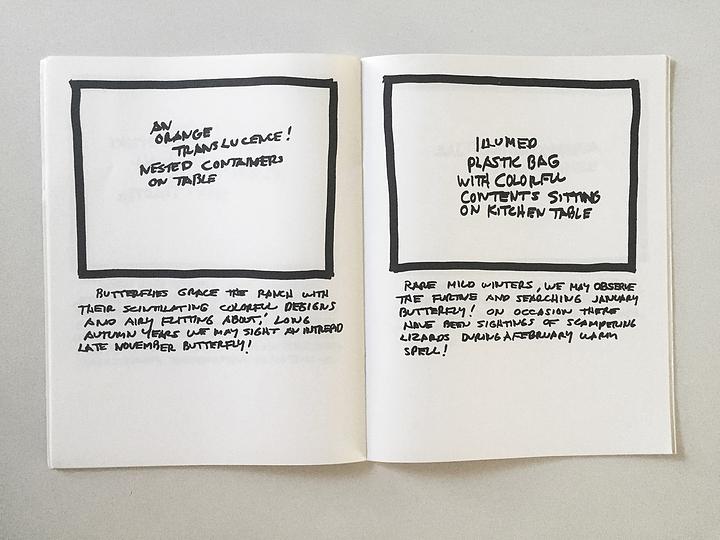 AN
ORANGE
TRANSLUCENCE!
NESTED CONTAINERS
ON TABLE
BUTTERFLIES GRACE THE RANCH WITH
THEIR SCINTILATING COLORFUL DESIGNS
AND AIRY FLITTING ABOUT; LONG
AUTUMN YEARS WE MAY SIGHT AN INTREPID
LATE NOVEMBER BUTTERFLY!
ILLUMED
PLASTIC BAG
WITH COLORFUL
CONTENTS SITTING
ON KITCHEN TABLE
RARE MILD WINTERS, WE MAY OBSERVE
THE FURTIVE AND SEARCHING JANUARY
BUTTERFLY! ON OCCASION THERE
HAVE BEEN SIGHTINGS OF SCAMPERING
LIZARDS DURING A FEBRUARY WARM
SPELL!